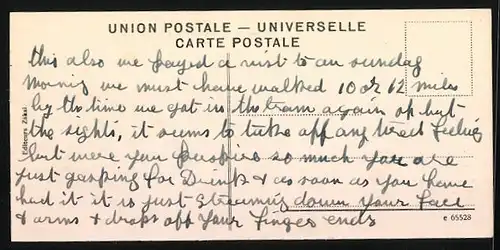 UNION POSTALE — UNIVERSELLE
CARTE POSTALE
this also we payed a visit to on sunday
morning we must have walked 10 or 12 miles
by the time we got in the tram again oh but
the sights, it seems to take off any tired feeling
but were you perspire so much you are
just gasping for Drink & as soon as you have
had it it is just streaming down your face
& arms & drops off your finger ends
Editeurs Zakai
e 65528